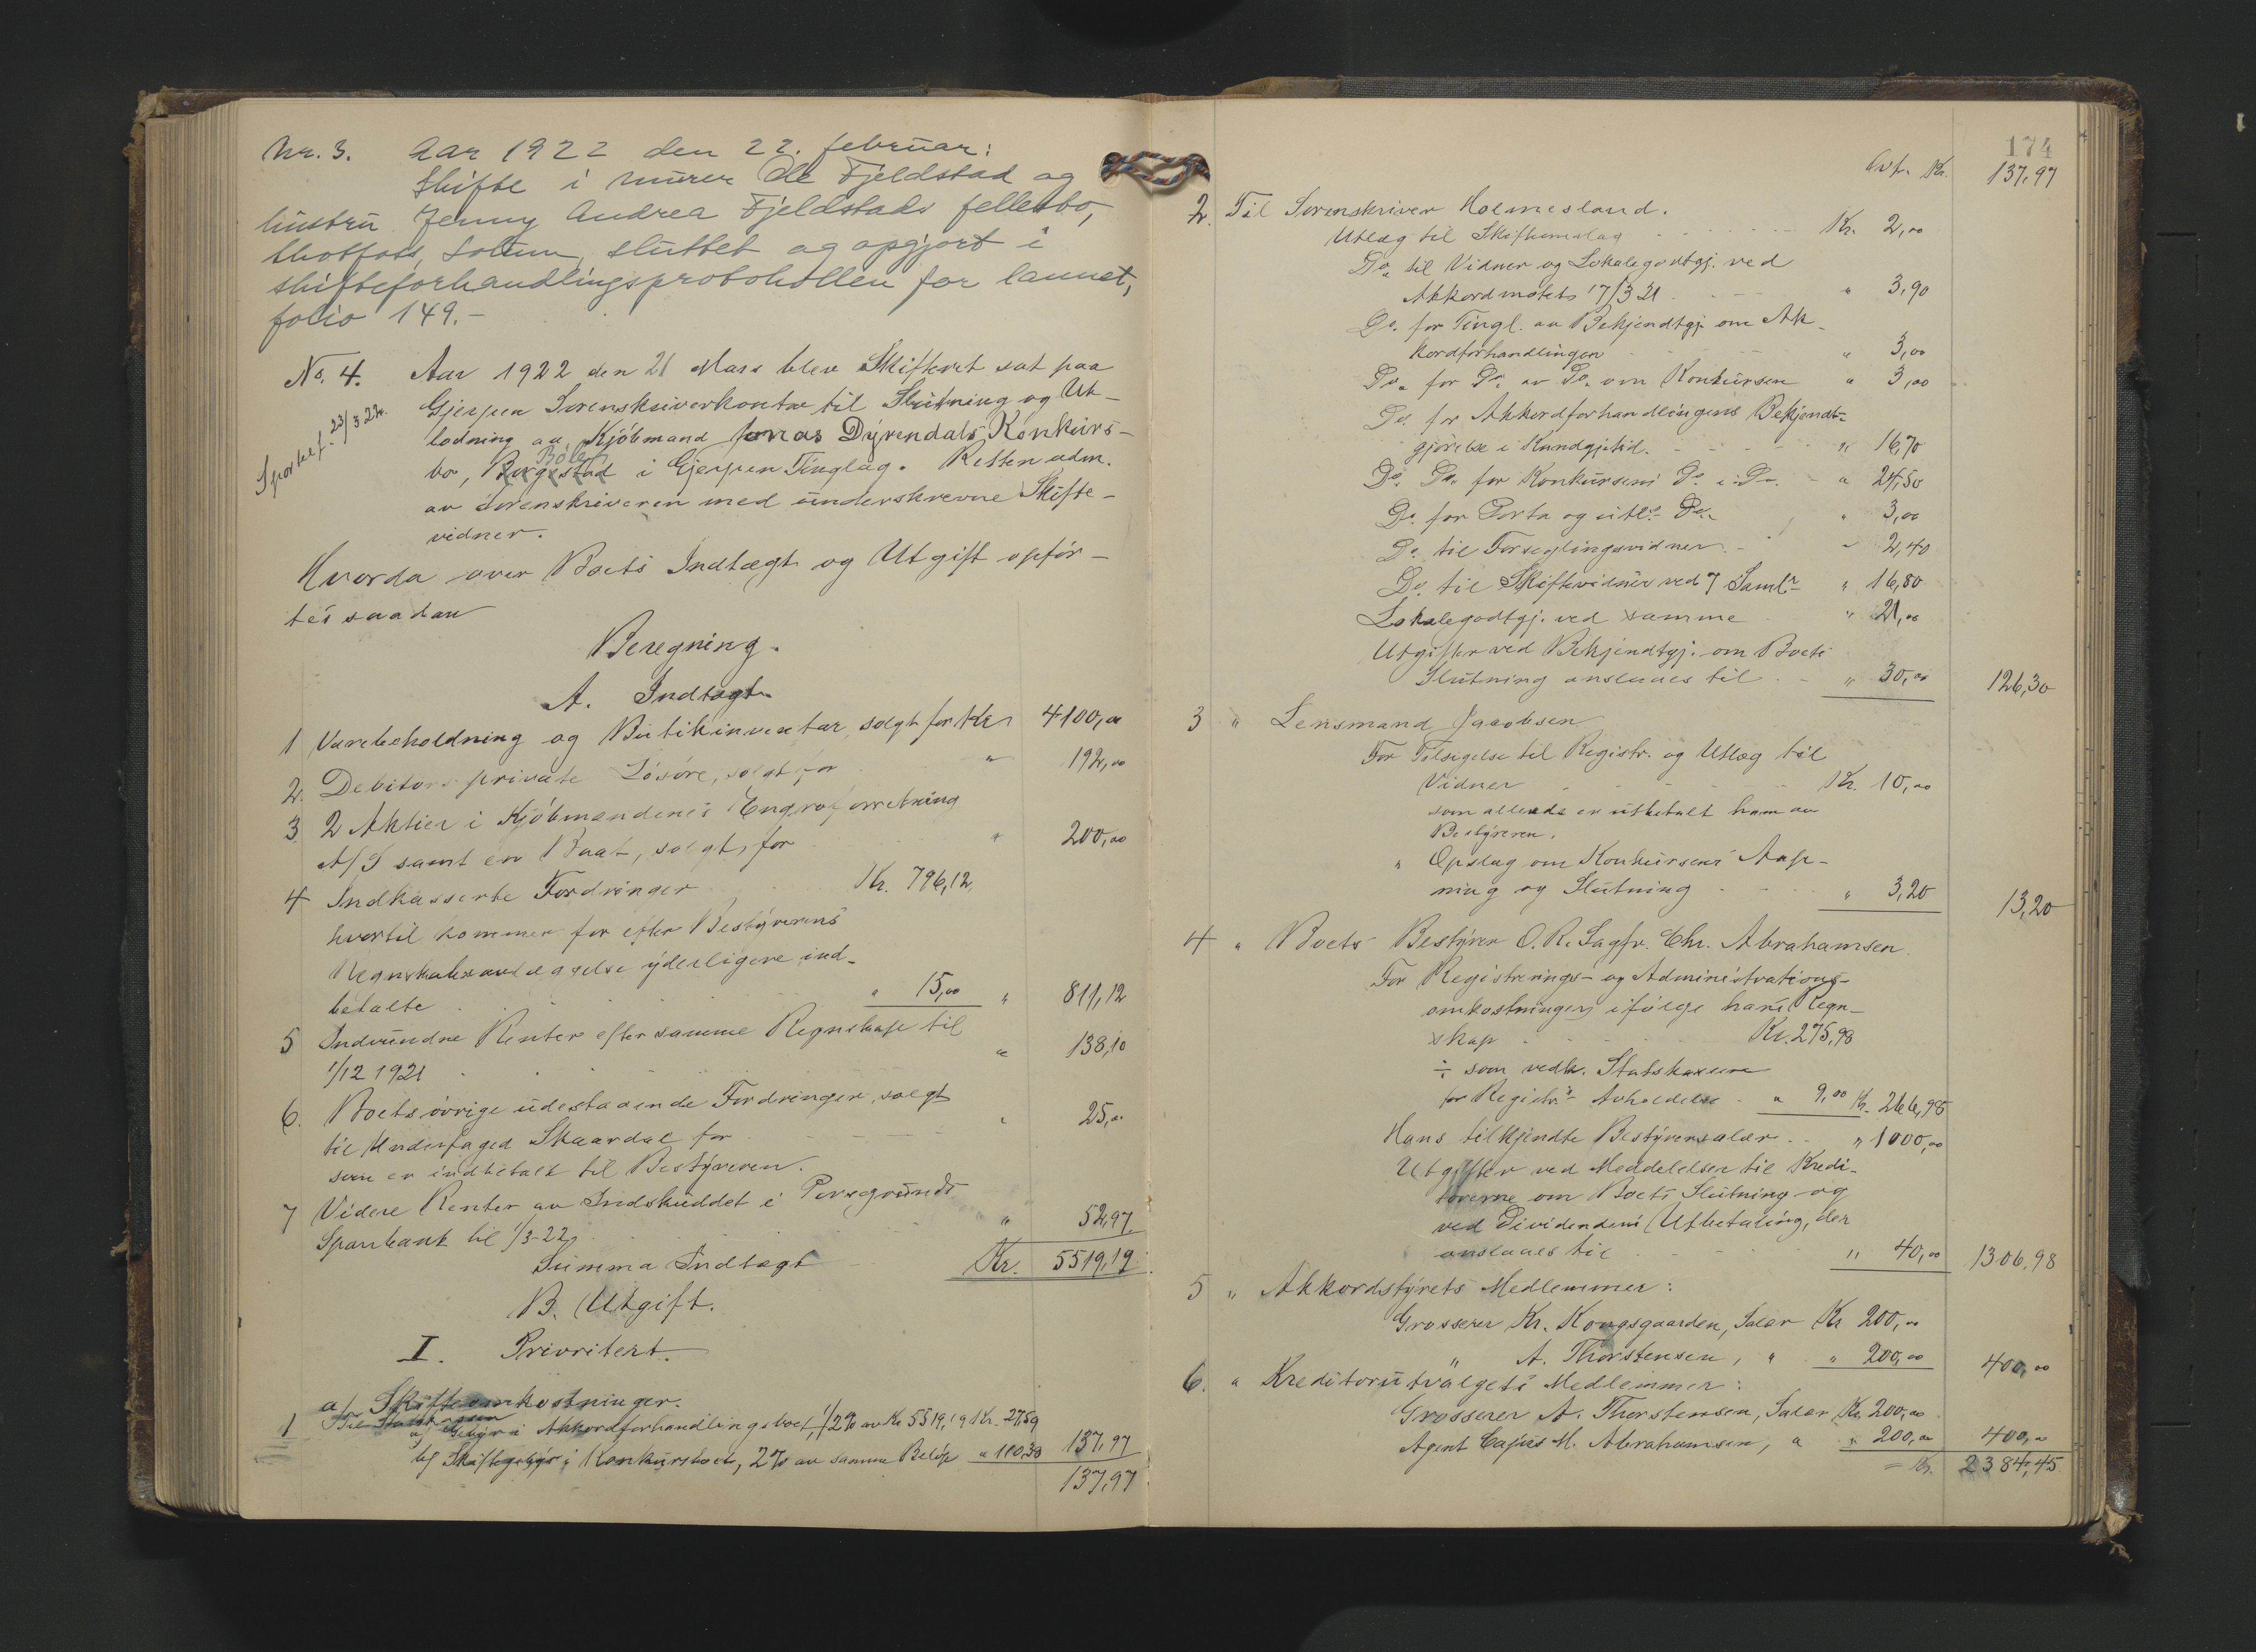 Nr. 3. Aar 1922 den 22. februar:
Skifte i murer Ole Fjeldstad og
hustru Jenny Andrea Fjeldstads fellesbo,
Skotfoss, Solum, sluttet og opgjort i
skifteforhandlingsprotokollen for lannet,
folio 149.-
No. 4. Aar 1922 den 21 Mars blev Skifteret sat paa
Sportelf. 23/3 22.
Gjerpen Sorenskriverkontor til Slutning og Ut-
lodning av Kjöbmand Jonas Dyrendals Konkurs-
Böle
bo, Borgestad i Gjerpen Tinglag. Retten adm.
av Sorenskriveren med underskrevne Skifte-
vidner.
Hvorda over Boets Indtægt og Utgift opför-
tes saadan
Beregning.
A. Indtægt.
1 Varebeholdning og Butikinventar, solgt for Kr. 4100,00
2. Debitors private Lösöre, solgt for " 192,00
3. 2 Aktier i Kjöbmandenes Engrosforretning
A/S samt en Baat, solgt for " 200,00
4 Indkasserte Fordringer Kr. 796,12
hvortil kommer for efter Bestyrerens
Regnskabsavlæggelse yderligere ind-
betalte " 15,00 " 811,12
5 Indvundne Renter efter samme Regnskap til
1/12 1921 " 138,10
6. Boets övrige udestaaende Fordringer, solgt
til Underfoged Skaardal for " 25,00
som er indbetalt til Bestyreren.
7 Videre Renter av Indskuddet i Porsgrunds
Sparebank til 1/3-22 " 52,97
Summa Indtægt Kr. 5519,19
B. Utgift.
I. Prioritert.
a/ Skifteomkostninger.
1 Til Statskassen
a/ Gebyr i Akkordforhandlingsboet, 1/2% av Kr 5519,19 Kr. 27,59
b/ Skiftegebyr i Konkursboet, 2% av samme Belöp " 110,38 137,97
137,97
174
Ovf. Kr. 137,97
2. Til Sorenskriver Holmesland.
Utlæg til Skifteomslag Kr. 2,00
Do. til Vidner og Lokalegodtgj. ved
Akkordmötets 17/3 21 " 3,90
Do. for Tingl. av Bekjendtgj. om Ak-
kordforhandlingen " 3,00
Do. for Do. av Do. om Konkursen " 3,00
Do. for Akkordforhandlingens Bekjendt-
gjörelse i Kundgjtid. " 16,70
Do. Do. for Konkursens Do. i Do. " 24,50
Do. for Porto og Do. " 3,00
Do. til Forseglingsvidner " 2,40
Do. til Skiftevidner ved 7 Saml. " 16,80
Lokalegodtgj. ved samme " 21,00
Utgifter ved Bekjendtgj. om Boets
Slutning anslaaes til " 30,00 126,30
3 " Lensmand Jacobsen
For Tilsigelse til Registr. og Utlæg til
Vidner Kr. 10,00
som allerede er utbetalt ham av
Bestyreren.
" Opslag om Konkursens Aap-
ning og Slutning " 3,20 13,20
4 " Boets Bestyrer O.R. Sagfr. Chr. Abrahamsen.
For Registrerings- og Administrations-
omkostninger ifölge hans Regn-
skap Kr. 275,98
÷ som vedk. Statskassen
for Registr. Avholdelse " 9,00 Kr. 266,98
Hans tilkjendte Bestyrersalær " 1000,00
Utgifter ved Meddelelser til Kredi-
torerne om Boets Slutning og
ved Dividendens Utbetaling, der
anslaaes til " 40,00 1306,98
5 " Akkordstyrets Medlemmer:
Grosserer Kr. Kongsgaarden, Salær Kr 200,00
" A. Thorstensen, " " 200,00 400,00
6. " Kreditorutvalgets Medlemmer:
Grosserer A. Thorstensen, Salær Kr. 200,00
Agent Cajus M. Abrahamsen, " " 200,00 400,00
Kr. 2384,45